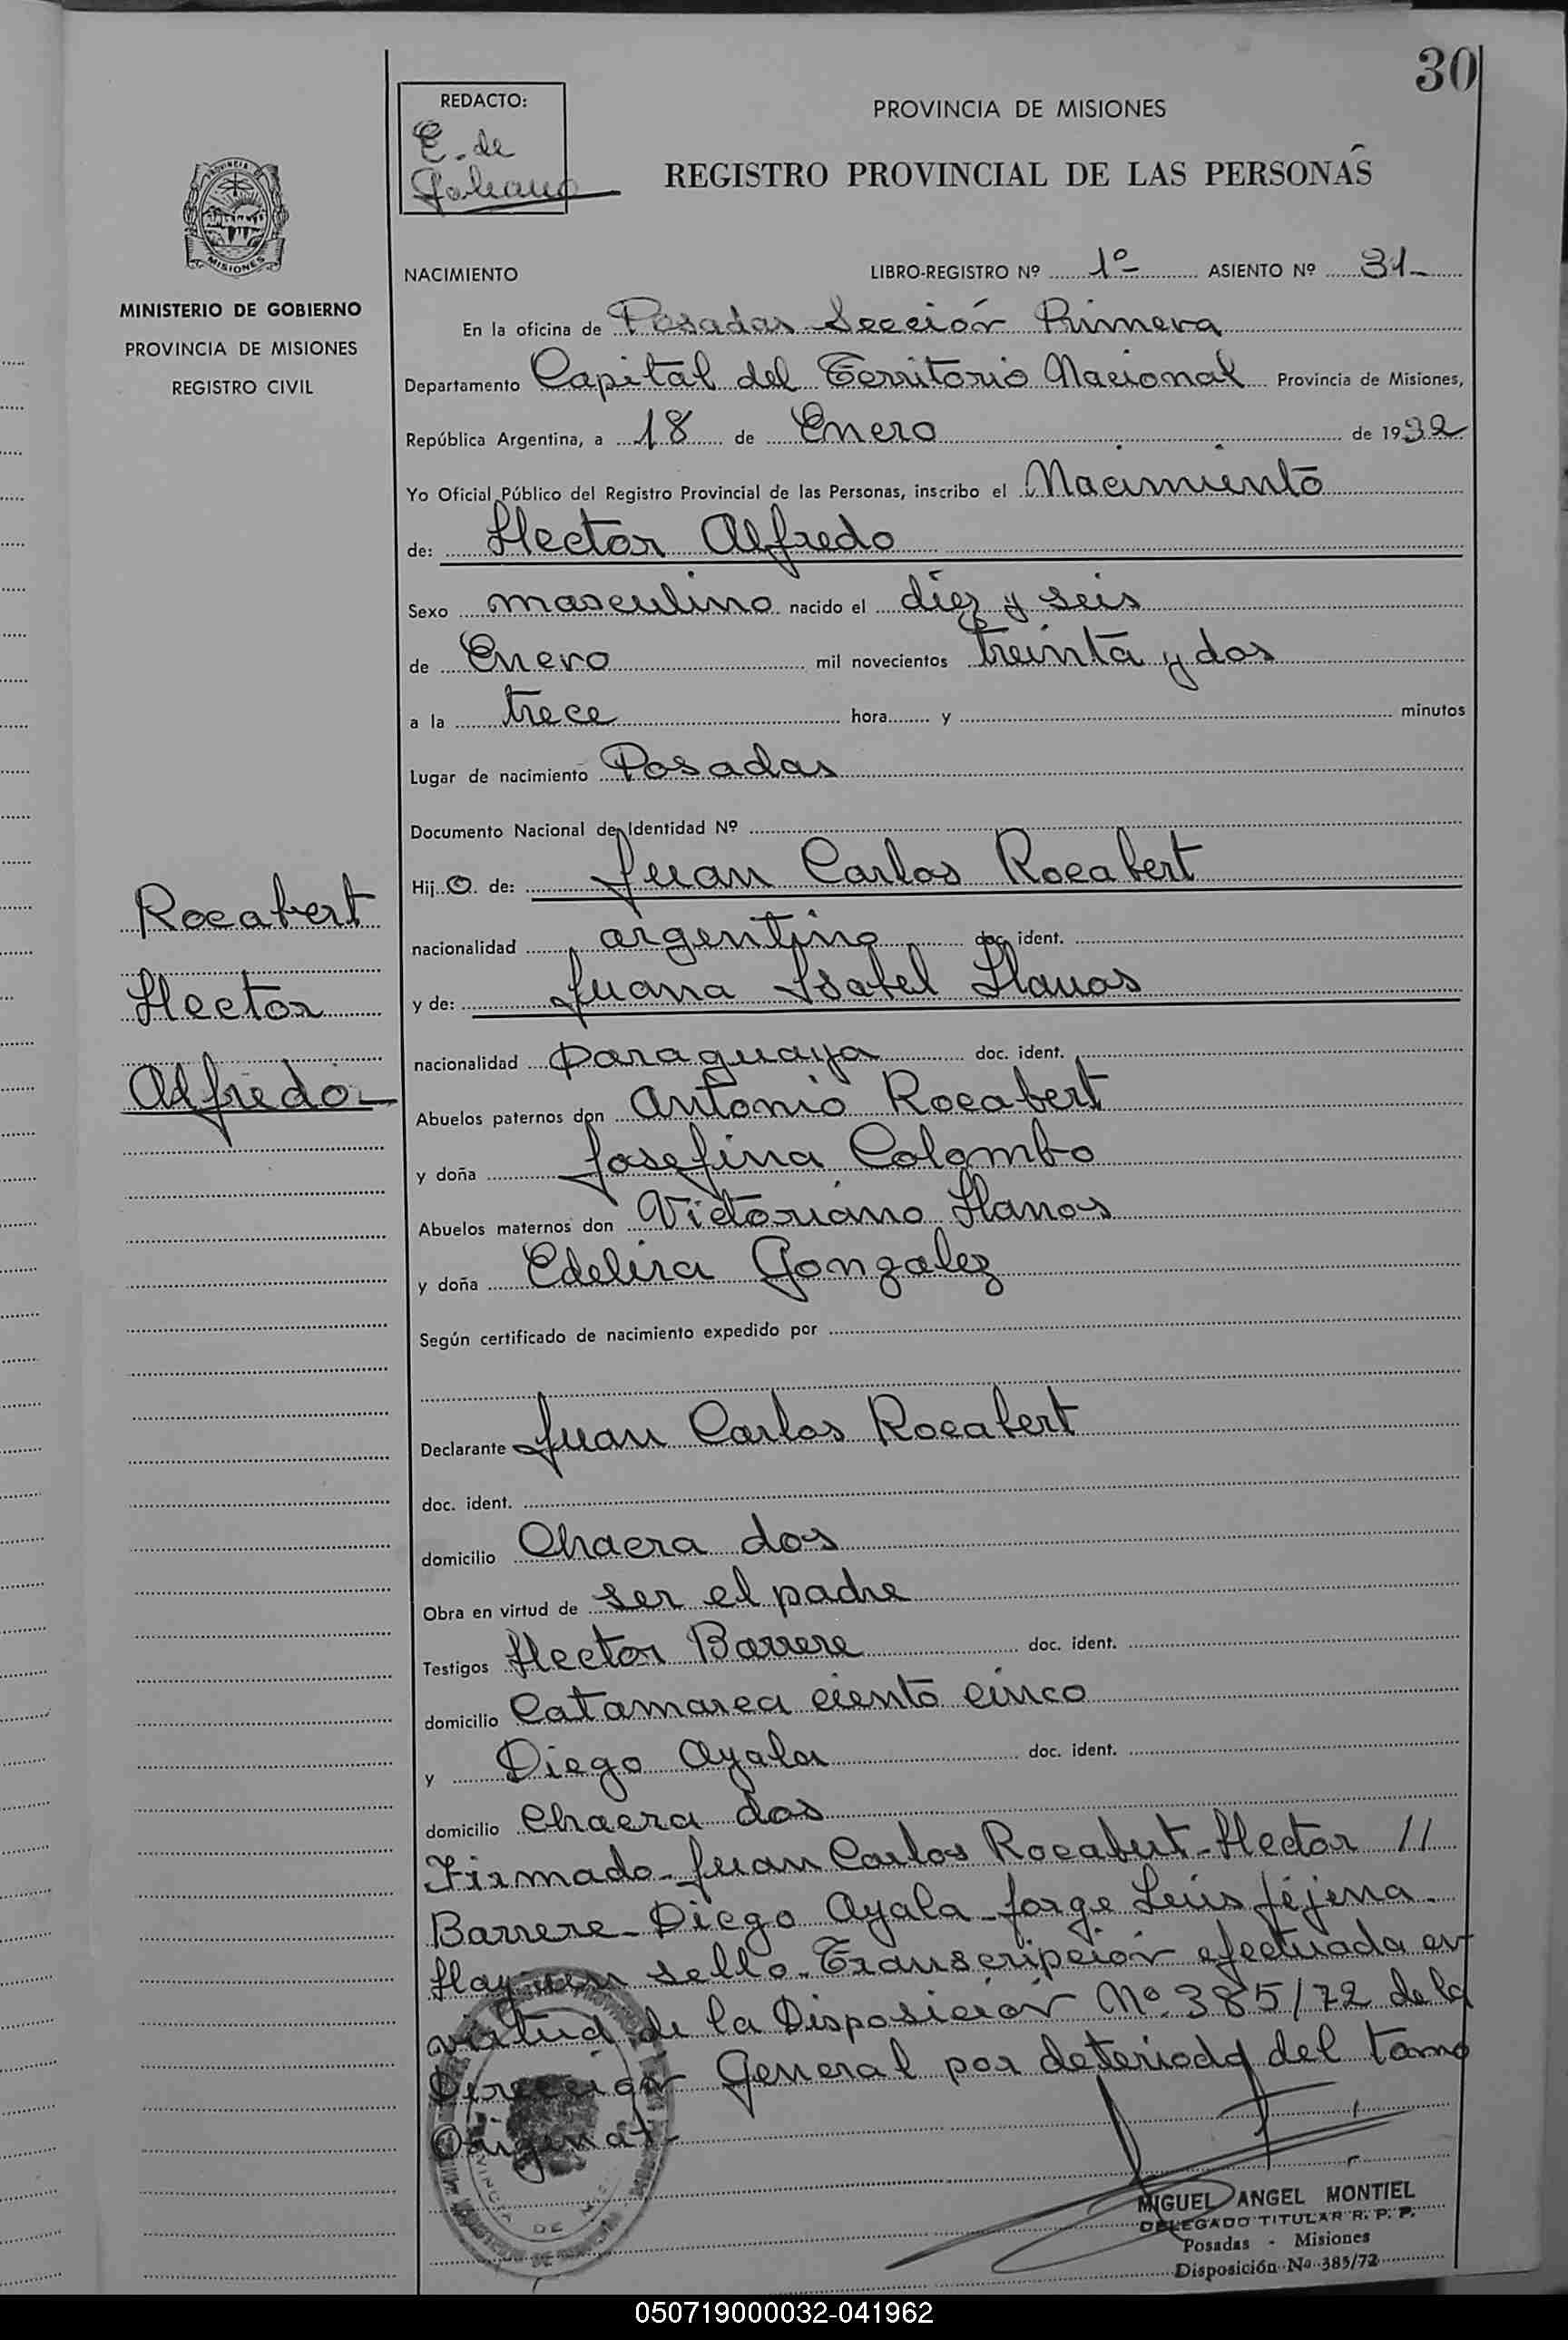 30
REDACTO:
E. de
PROVINCIA DE MISIONES
REGISTRO PROVINCIAL DE LAS PERSONAS
MISIONES
MINISTERIO DE GOBIERNO
PROVINCIA DE MISIONES
REGISTRO CIVIL
NACIMIENTO LIBRO-REGISTRO Nº 1º ASIENTO Nº 31-
En la oficina de Posadas Sección Primera
Departamento Capital del Territorio Nacional Provincia de Misiones,
República Argentina, a 18 de Enero de 1932
Yo Oficial Público del Registro Provincial de las Personas, inscribo el Nacimiento
de: Hector Alfredo
Sexo masculino nacido el diez y seis
de Enero mil novecientos treinta y dos
a la trece hora y minutos
Lugar de nacimiento Posadas
Documento Nacional de Identidad Nº
Hij o de: Juan Carlos Rocabert
nacionalidad argentino doc. ident.
y de: Juana Isabel Llanos
nacionalidad paraguaya doc. ident.
Abuelos paternos don Antonio Rocabert
y doña Josefina Colombo
Abuelos maternos don Victoriano Llanos
y doña Edelira Gonzalez
Según certificado de nacimiento expedido por
Declarante Juan Carlos Rocabert
doc. ident.
domicilio Chacra dos
Obra en virtud de ser el padre
Testigos Hector Barrere doc. ident.
domicilio Catamarca ciento cinco
y Diego Ayala doc. ident.
domicilio Chacra dos
Firmado-Juan Carlos Rocabert-Hector //
Barrere-Diego Ayala-Jorge Luis Jéjena-
Hay un sello-Transcripción efectuada en
virtud de la Disposición Nº 385/72 de la
Dirección General por deteriodo del tomo
Original-
Rocabert
Hector
Alfredo-
MIGUEL ANGEL MONTIEL
DELEGADO TITULAR R. P. P.
Posadas - Misiones
Disposición Nº 385/72
050719000032-041962